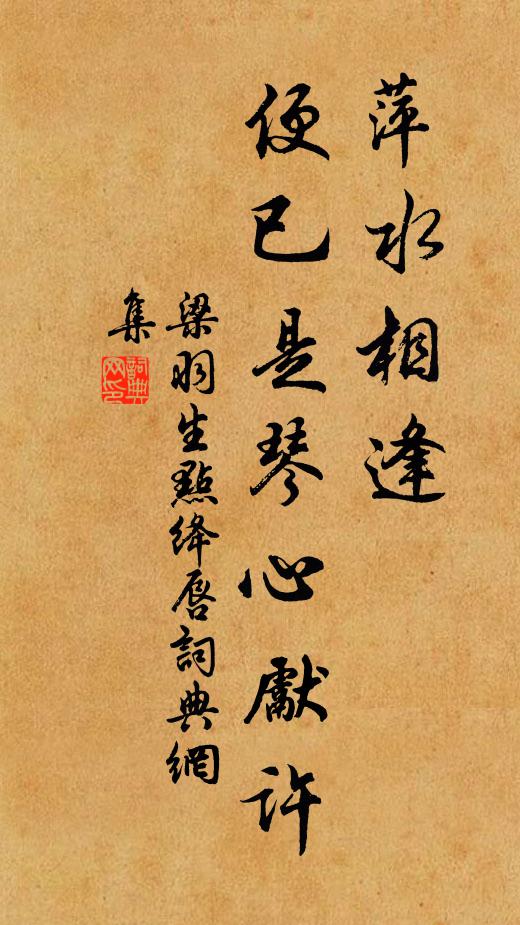 萍水相逢
便已是琴心獻許
梁羽生點絳唇詞典網
集
詞典
网印